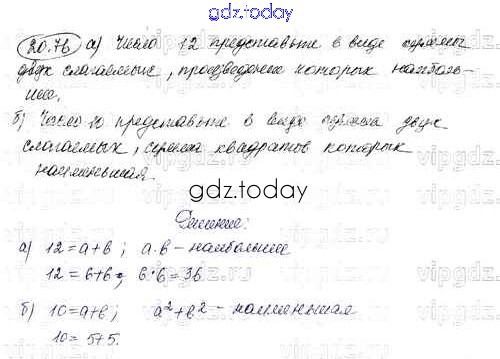 gdz.today
20.76 а) Число 12 представьте в виде суммы
двух слагаемых, произведение которых наиболь-
шее.
б) Число 10 представьте в виде суммы двух
слагаемых, сумма квадратов которых
наименьшая.
gdz.today
Решение:
а) 12=a+b; a·b – наибольшее
12=6+6; 6·6=36
б) 10=a+b; a²+b² – наименьшая
10=5+5.